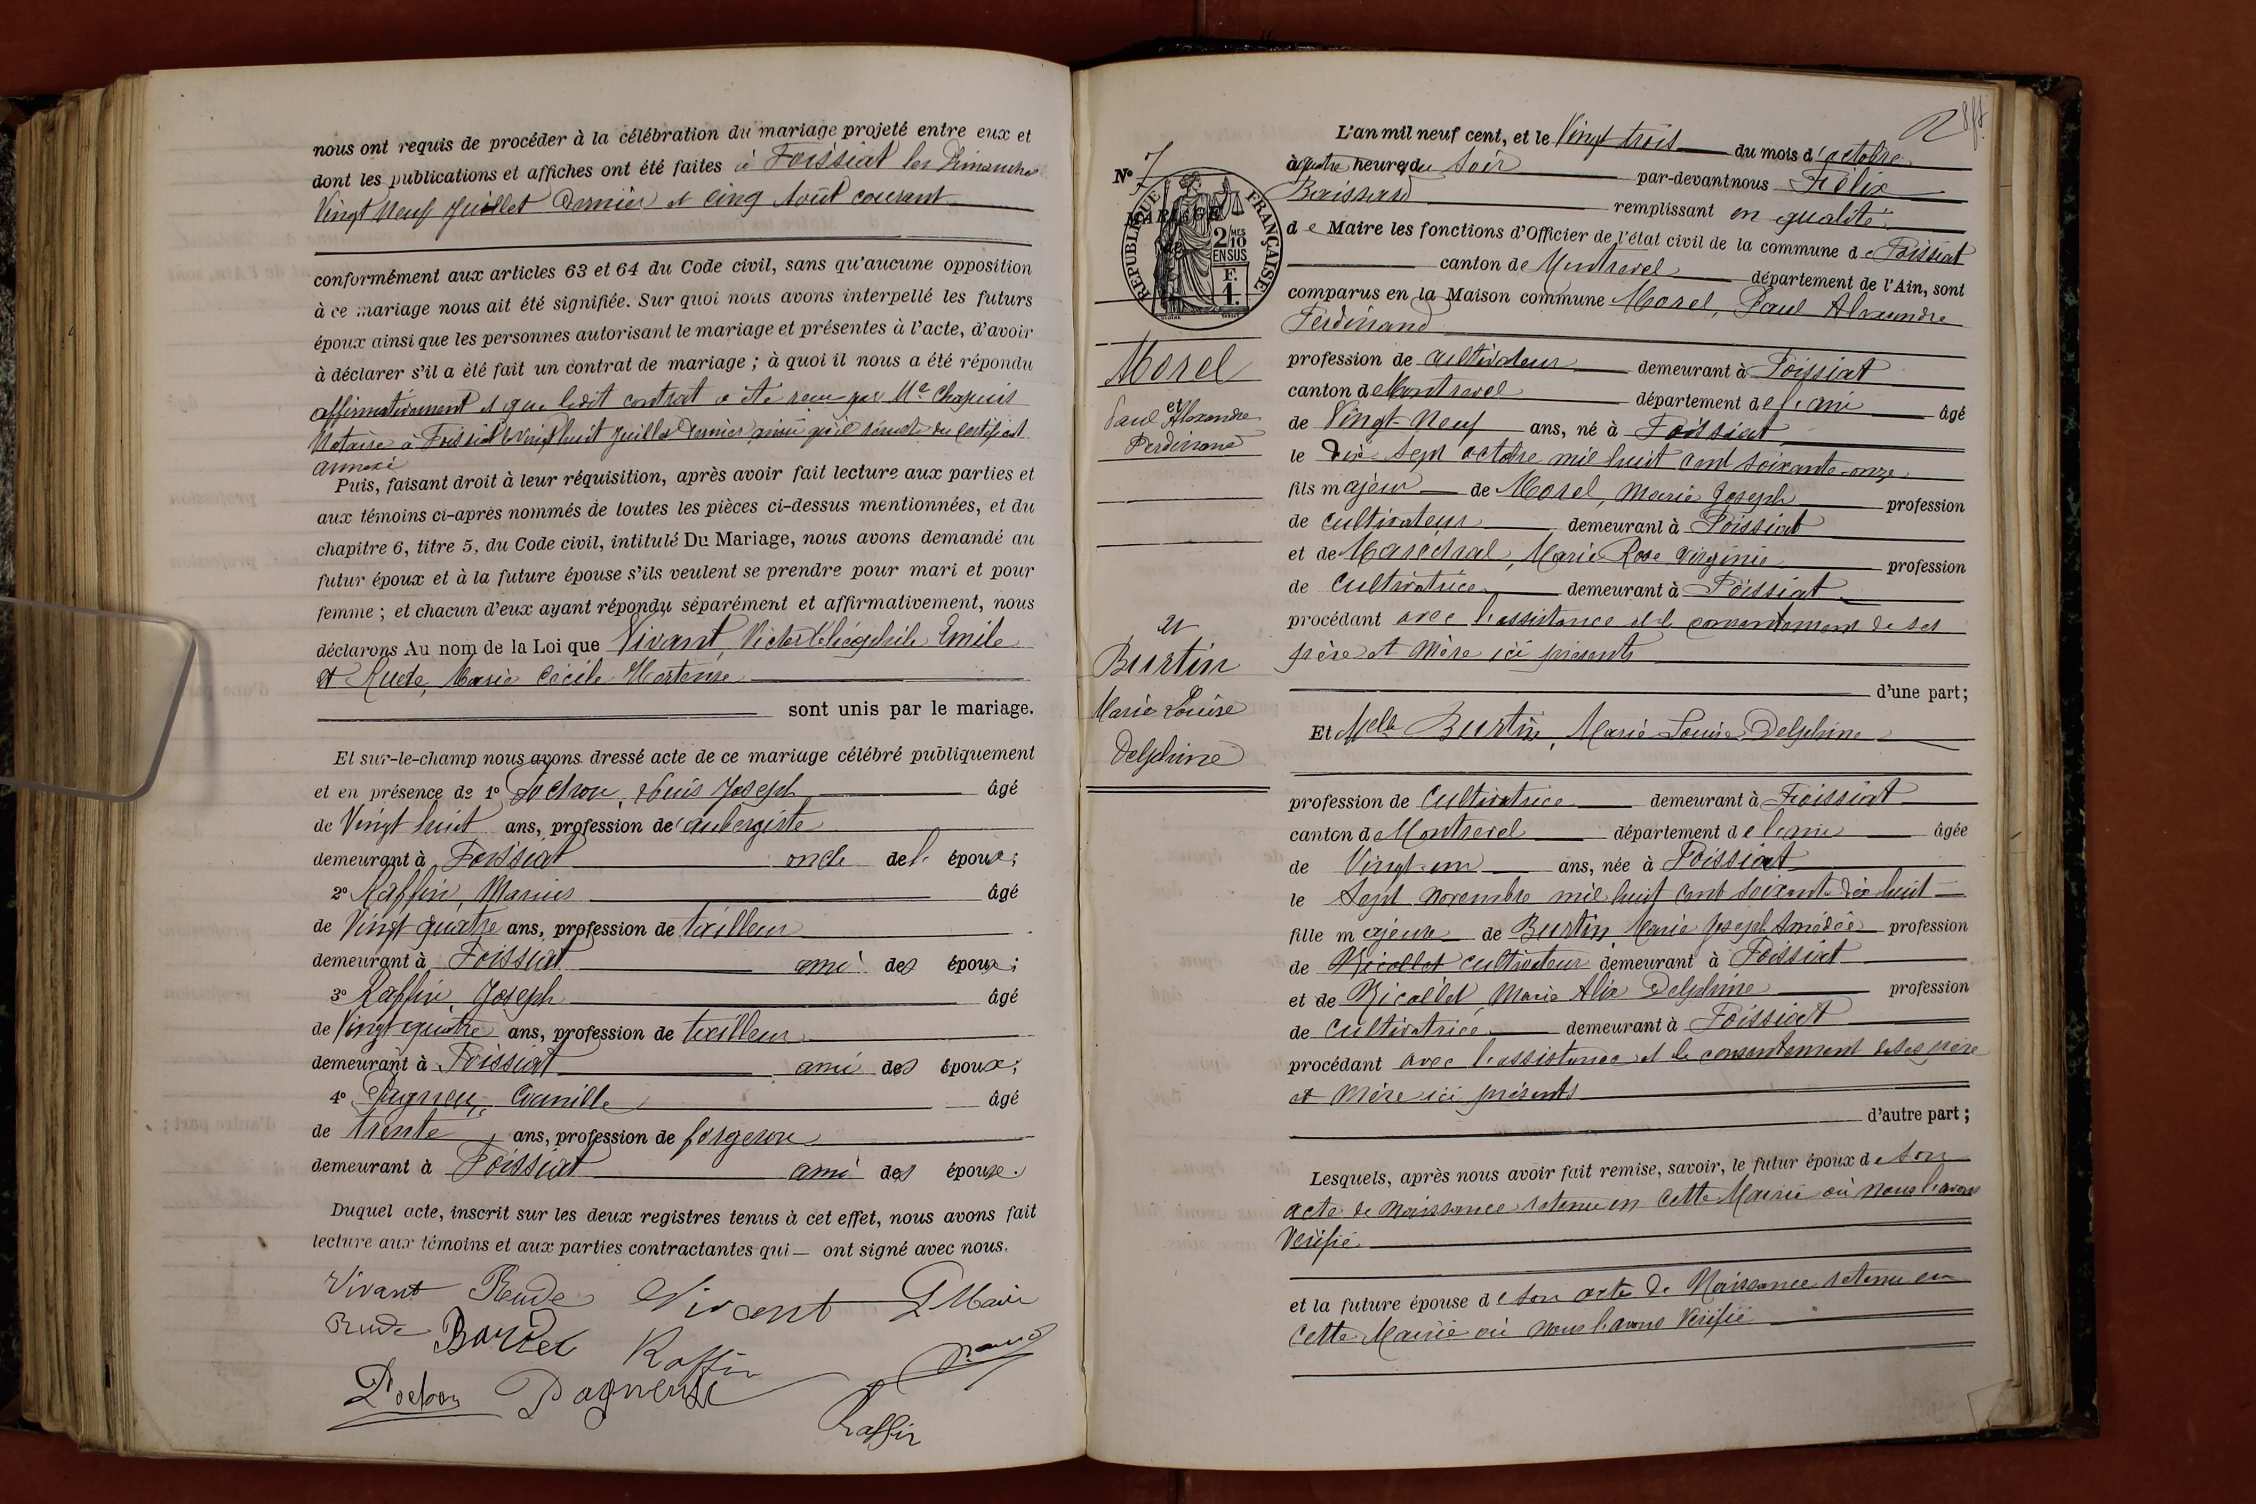 nous ont requis de procéder à la célébration du mariage projeté entre eux et
dont les publications et affiches ont été faites à Foissiat les Dimanches
Vingt Neuf Juillet Dernier et Cinq Août courant
conformément aux articles 63 et 64 du Code civil, sans qu'aucune opposition
à ce mariage nous ait été signifiée. Sur quoi nous avons interpellé les futurs
époux ainsi que les personnes autorisant le mariage et présentes à l'acte, d'avoir
à déclarer s'il a été fait un contrat de mariage ; à quoi il nous a été répondu
affirmativement et que ledit contrat a été reçu par Me Chapuis
Notaire à Foissiat le vingt huit Juillet Dernier ainsi qu'il résulte du certificat
annexé
Puis, faisant droit à leur réquisition, après avoir fait lecture aux parties et
aux témoins ci-après nommés de toutes les pièces ci-dessus mentionnées, et du
chapitre 6, titre 5, du Code civil, intitulé Du Mariage, nous avons demandé au
futur époux et à la future épouse s'ils veulent se prendre pour mari et pour
femme ; et chacun d'eux ayant répondu séparément et affirmativement, nous
déclarons Au nom de la Loi que Vivant, Victor Emile
et Rude, Marie Cécile Hortense
sont unis par le mariage.
Et sur-le-champ nous avons dressé acte de ce mariage célébré publiquement
et en présence de 1° Louis Joseph âgé
de Vingt huit ans, profession de aubergiste
demeurant à Foissiat oncle de l' époux ;
2° Raffin, Marius âgé
de Vingt quatre ans, profession de tailleur
demeurant à Foissiat ami des époux ;
3° Raffin, Joseph âgé
de Vingt quatre ans, profession de tailleur
demeurant à Foissiat ami des époux ;
4° Camille âgé
de trente ans, profession de forgeron
demeurant à Foissiat ami des époux.
Duquel acte, inscrit sur les deux registres tenus à cet effet, nous avons fait
lecture aux témoins et aux parties contractantes qui — ont signé avec nous.
Vivant Rude Vivant
Rude Raffin
Raffin
N° 7
MARIAGE
RÉPUBLIQUE FRANÇAISE
2 MES
10
EN SUS
F.
1.
Morel
et
Paul Alexandre
Ferdinand
et
Burtin
Marie Louise
Delphine
L'an mil neuf cent, et le Vingt trois du mois d'octobre
à quatre heures du soir par-devant nous Félix
remplissant en qualité
de Maire les fonctions d'Officier de l'état civil de la commune de Foissiat
canton de Montrevel département de l'Ain, sont
comparus en la Maison commune Morel, Paul Alexandre
Ferdinand
profession de cultivateur demeurant à Foissiat
canton de Montrevel département de l'ain âgé
de Vingt-Neuf ans, né à Foissiat
le Dix Sept octobre mil huit cent soixante onze
fils majeur de Morel, Marie Joseph profession
de cultivateur demeurant à Foissiat
et de Maréchal, Marie Rose Virginie profession
de cultivatrice demeurant à Foissiat
procédant avec l'assistance et le consentement de ses
père et Mère ici présents
d'une part ;
Et Melle Burtin, Marie Louise Delphine
profession de Cultivatrice demeurant à Foissiat
canton de Montrevel département de l'ain âgée
de Vingt-un ans, née à Foissiat
le Sept Novembre mil huit cent soixante dix huit
fille majeure de Burtin Marie Joseph Amédée profession
de cultivateur demeurant à Foissiat
et de Marie Alix Delphine profession
de Cultivatrice demeurant à Foissiat
procédant avec l'assistance et le consentement de ses père
et Mère ici présents
d'autre part ;
Lesquels, après nous avoir fait remise, savoir, le futur époux de son
acte de Naissance retenu en cette Mairie où Nous l'avons
Vérifié
et la future épouse de son acte de Naissance retenu en
cette Mairie où nous l'avons Vérifié